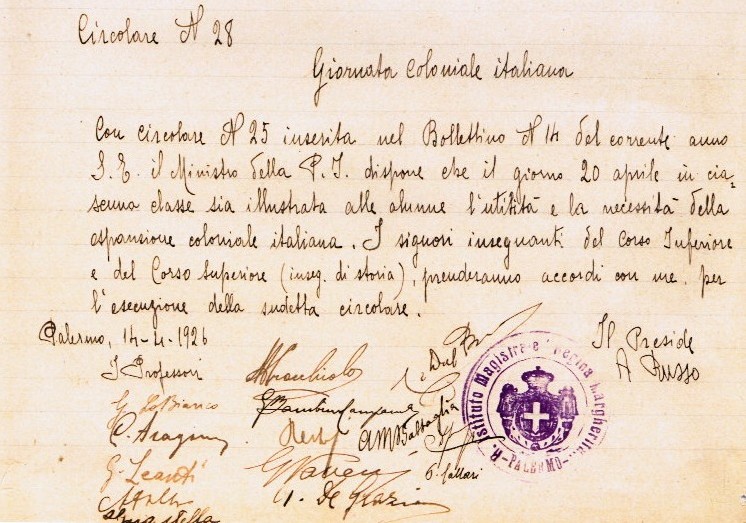 Circolare N 28
Giornata Coloniale italiana
Con circolare N 25 inserita nel Bollettino N 14 del corrente anno
S. E. il Ministro della P. I. dispone che il giorno 20 aprile in cia=
scuna classe sia illustrata alle alunne l'utilità e la necessità della
espansione coloniale italiana. I signori insegnanti del Corso Inferiore
e del Corso Superiore (inseg. di storia), prenderanno accordi con me per
l'esecuzione della sudetta circolare.
Palermo, 14-4-1926
Il Preside
A Russo
I Professori
G. Lo Bianco
C. Aragona
AM Battaglia
G. Leanti
I. De Grazia
Istituto Magistrale "Regina Margherita"
PALERMO